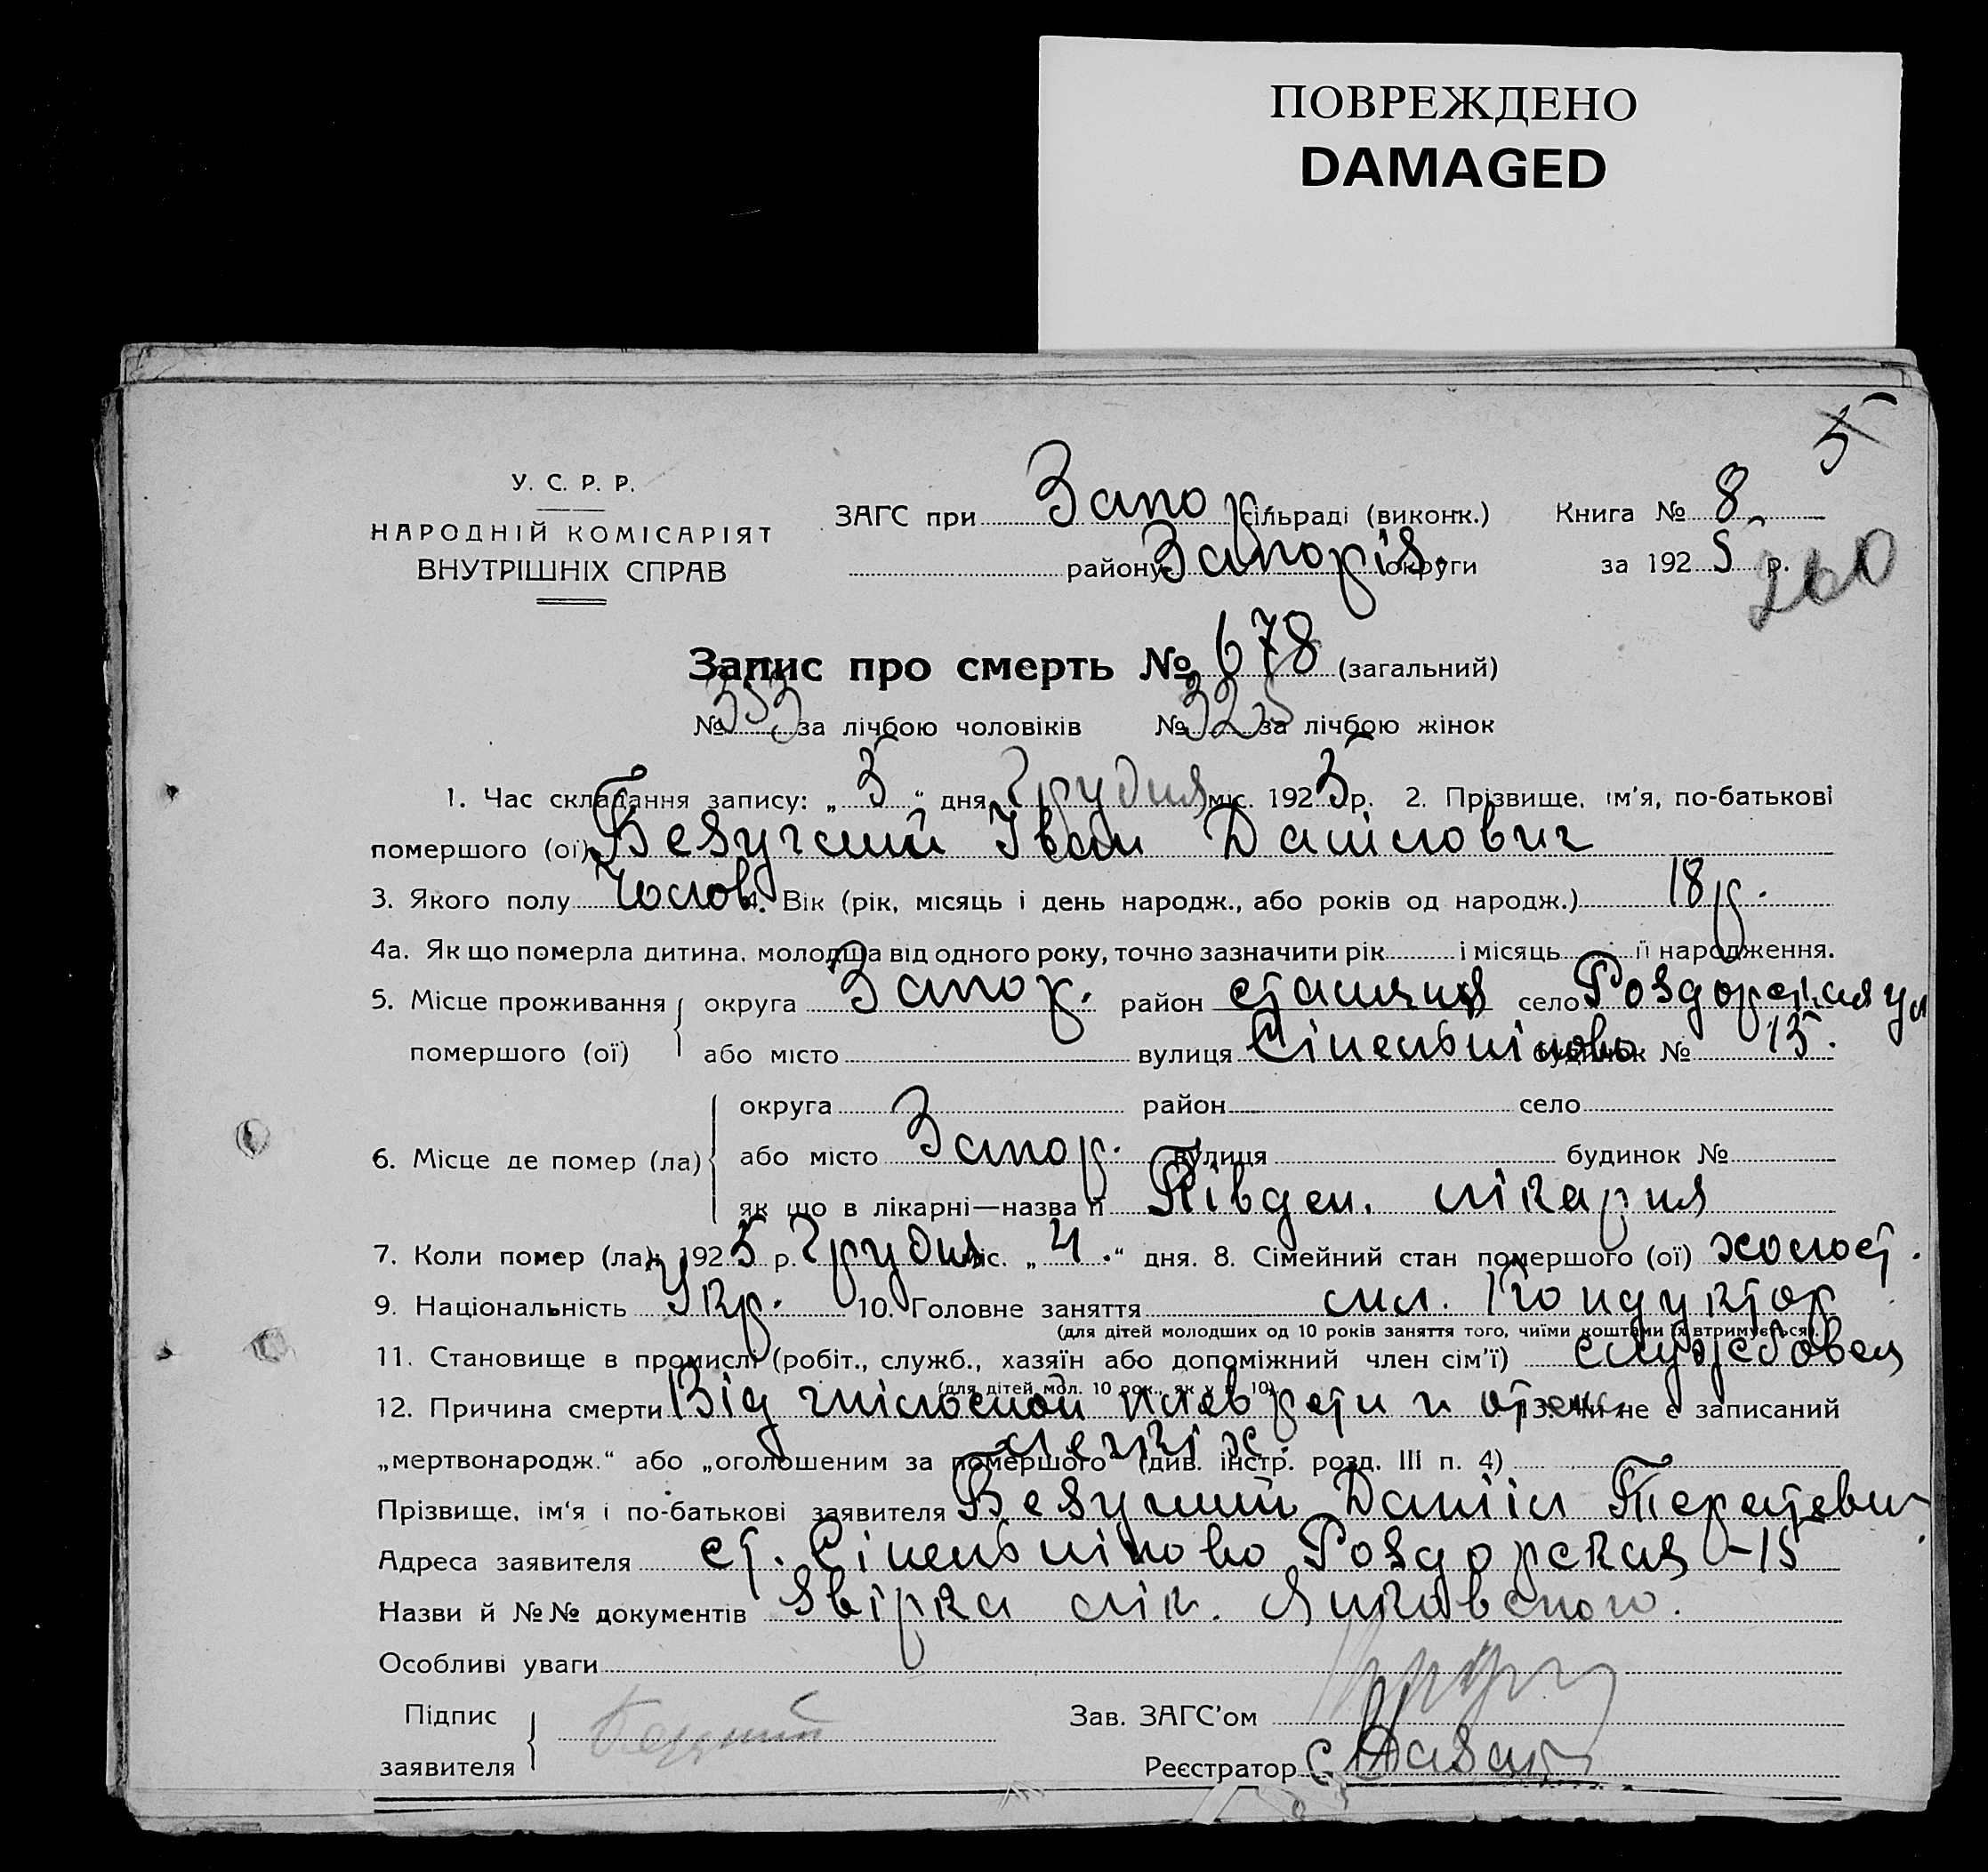 ПОВРЕЖДЕНО
DAMAGED
5
У. С. Р. Р.
НАРОДНІЙ КОМІСАРІЯТ
ВНУТРІШНІХ СПРАВ
ЗАГС при Запор сільраді (виконк.) Книга № 8
району Запоріз. округи за 1925 р.
260
Запис про смерть № 678 (загальний)
№ 353 за лічбою чоловіків № 325 за лічбою жінок
1. Час складання запису: „5“ дня Грудня міс. 1925 р. 2. Прізвище, ім'я, по-батькові
помершого (ої) Безучий Іван Данілович
3. Якого полу Чолов. 4. Вік (рік, місяць і день народж., або років од народж.) 18 р.
4а. Як що померла дитина, молодша від одного року, точно зазначити рік і місяць її народження.
5. Місце проживання округа Запор. район станция село Роздорская ул
помершого (ої) або місто вулиця Сінельніково будинок № 15.
округа район село
6. Місце де помер (ла) або місто Запор. вулиця будинок №
як що в лікарні—назва її Півден. лікарня
7. Коли помер (ла): 1925 р. Грудня міс. „4.“ дня. 8. Сімейний стан помершого (ої) холост.
9. Національність Укр. 10. Головне заняття мл. Кондуктор
(для дітей молодших од 10 років заняття того, чиїми коштами їх втримується).
11. Становище в промислі (робіт., служб., хазяїн або допоміжний член сім'ї) службовец
(для дітей мол. 10 рок., як у п. 10).
12. Причина смерти Від гнілосной плеврети и отек 13. Чи не є записаний
легкіх.
„мертвонародж.“ або „оголошеним за помершого“ (див. інстр. розд. III п. 4)
Прізвище, ім'я і по-батькові заявителя Безучий Данііл
Адреса заявителя ст. Сінельніково Роздорская – 15
Назви й №№ документів Звірка лік.
Особливі уваги
Підпис
заявителя
Зав. ЗАГС'ом
Реєстратор